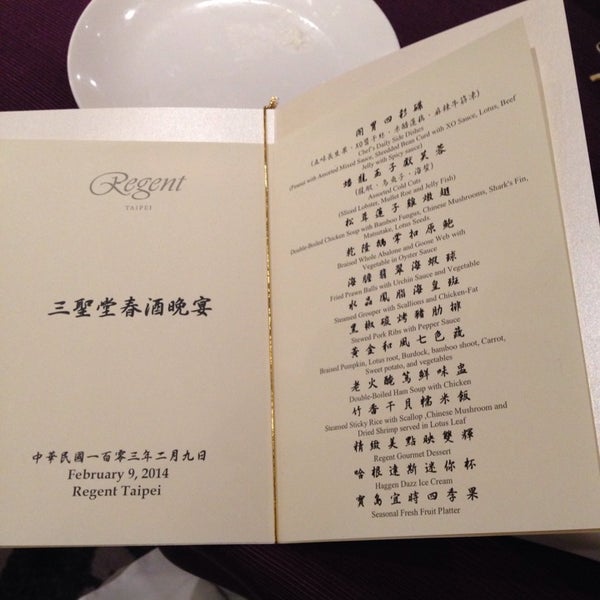 Regent
TAIPEI
三聖堂春酒晚宴
中華民國一百零三年二月九日
February 9, 2014
Regent Taipei
開胃四彩碟
(五味長生果、XO醬干絲、來醋蓮藕、麻辣牛筋凍)
Chef's Daily Side Dishes
(Peanut with Assorted Mixed Sauce, Shredded Bean Curd with XO Sauce, Lotus, Beef
Jelly with Spicy sauce)
蟠龍玉子獻芙蓉
(龍蝦、烏魚子、海蜇)
Assorted Cold Cuts
(Sliced Lobster, Mullet Roe and Jelly Fish)
松茸蓮子雞燉翅
Double-Boiled Chicken Soup with Bamboo Fungus, Chinese Mushrooms, Shark's Fin,
Matsutake, Lotus Seeds.
乾隆鵝掌扣原鮑
Braised Whole Abalone and Goose Web with
Vegetable in Oyster Sauce
海膽翡翠海蝦球
Fried Prawn Balls with Urchin Sauce and Vegetable
水晶鳳脂海皇斑
Steamed Grouper with Scallions and Chicken-Fat
黑椒碳烤豬肋排
Stewed Pork Ribs with Pepper Sauce
黃金和風七色蔬
Braised Pumpkin, Lotus root, Burdock, bamboo shoot, Carrot,
Sweet potato, and vegetables
老火醃篤鮮味盅
Double-Boiled Ham Soup with Chicken
竹香干貝糯米飯
Steamed Sticky Rice with Scallop ,Chinese Mushroom and
Dried Shrimp served in Lotus Leaf
精緻美點映雙輝
Regent Gourmet Dessert
哈根達斯迷你杯
Haggen Dazz Ice Cream
寶島宜時四季果
Seasonal Fresh Fruit Platter